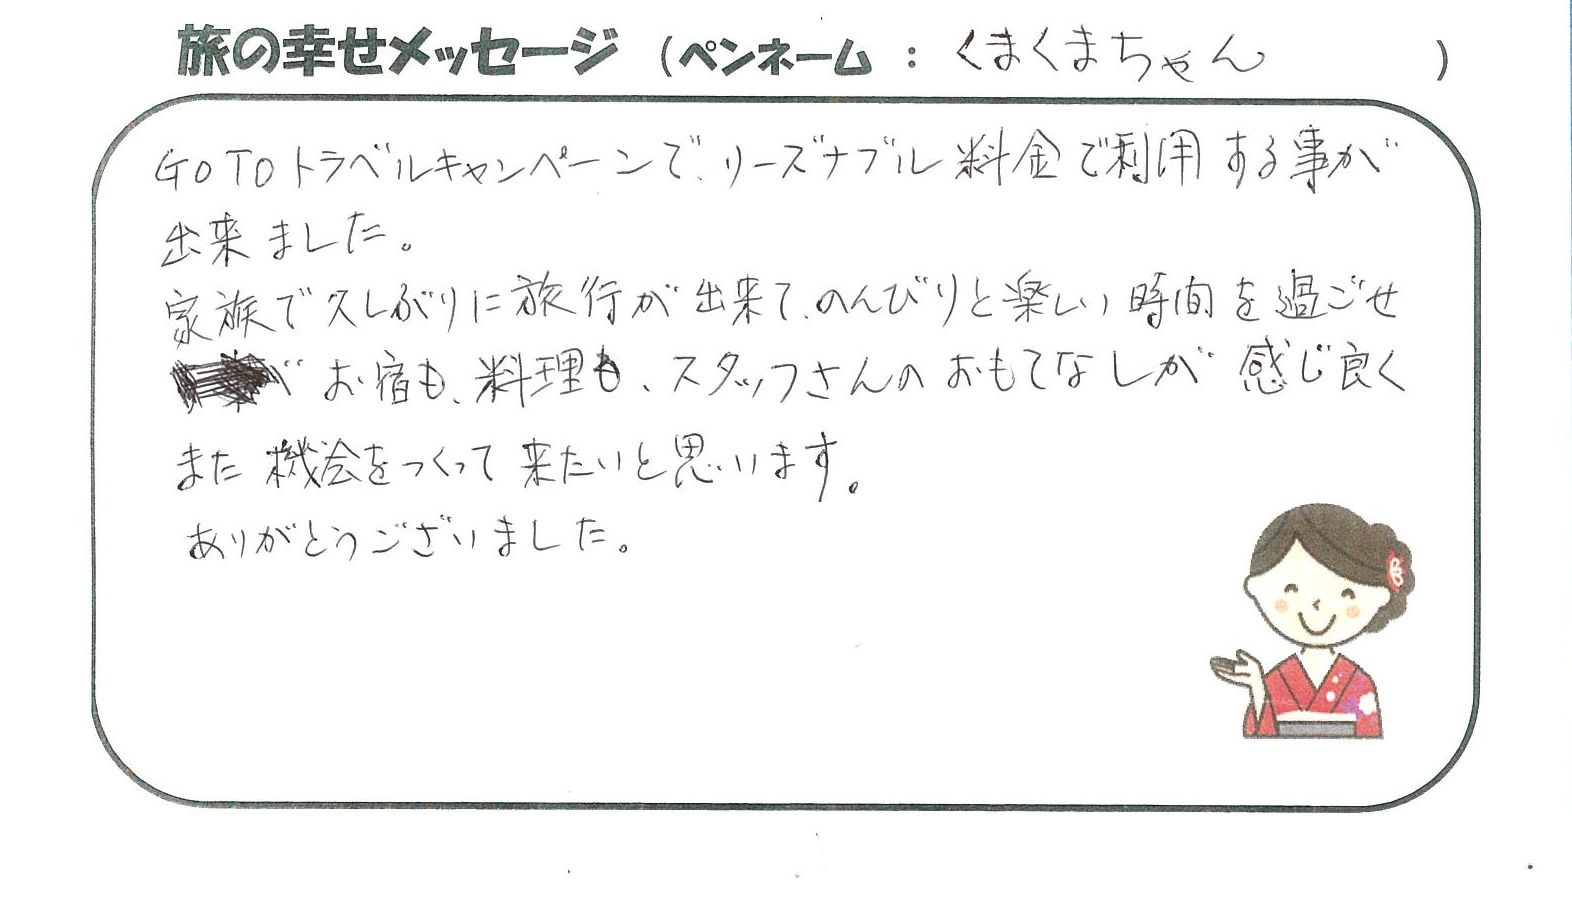 旅の幸せメッセージ (ペンネーム : くまくまちゃん )
GO TO トラベルキャンペーンで、リーズナブル料金で利用する事が
出来ました。
家族で久しぶりに旅行が出来て、のんびりと楽しい時間を過ごせ
お宿も、料理も、スタッフさんのおもてなしが感じ良く
また機会をつくって来たいと思います。
ありがとうございました。